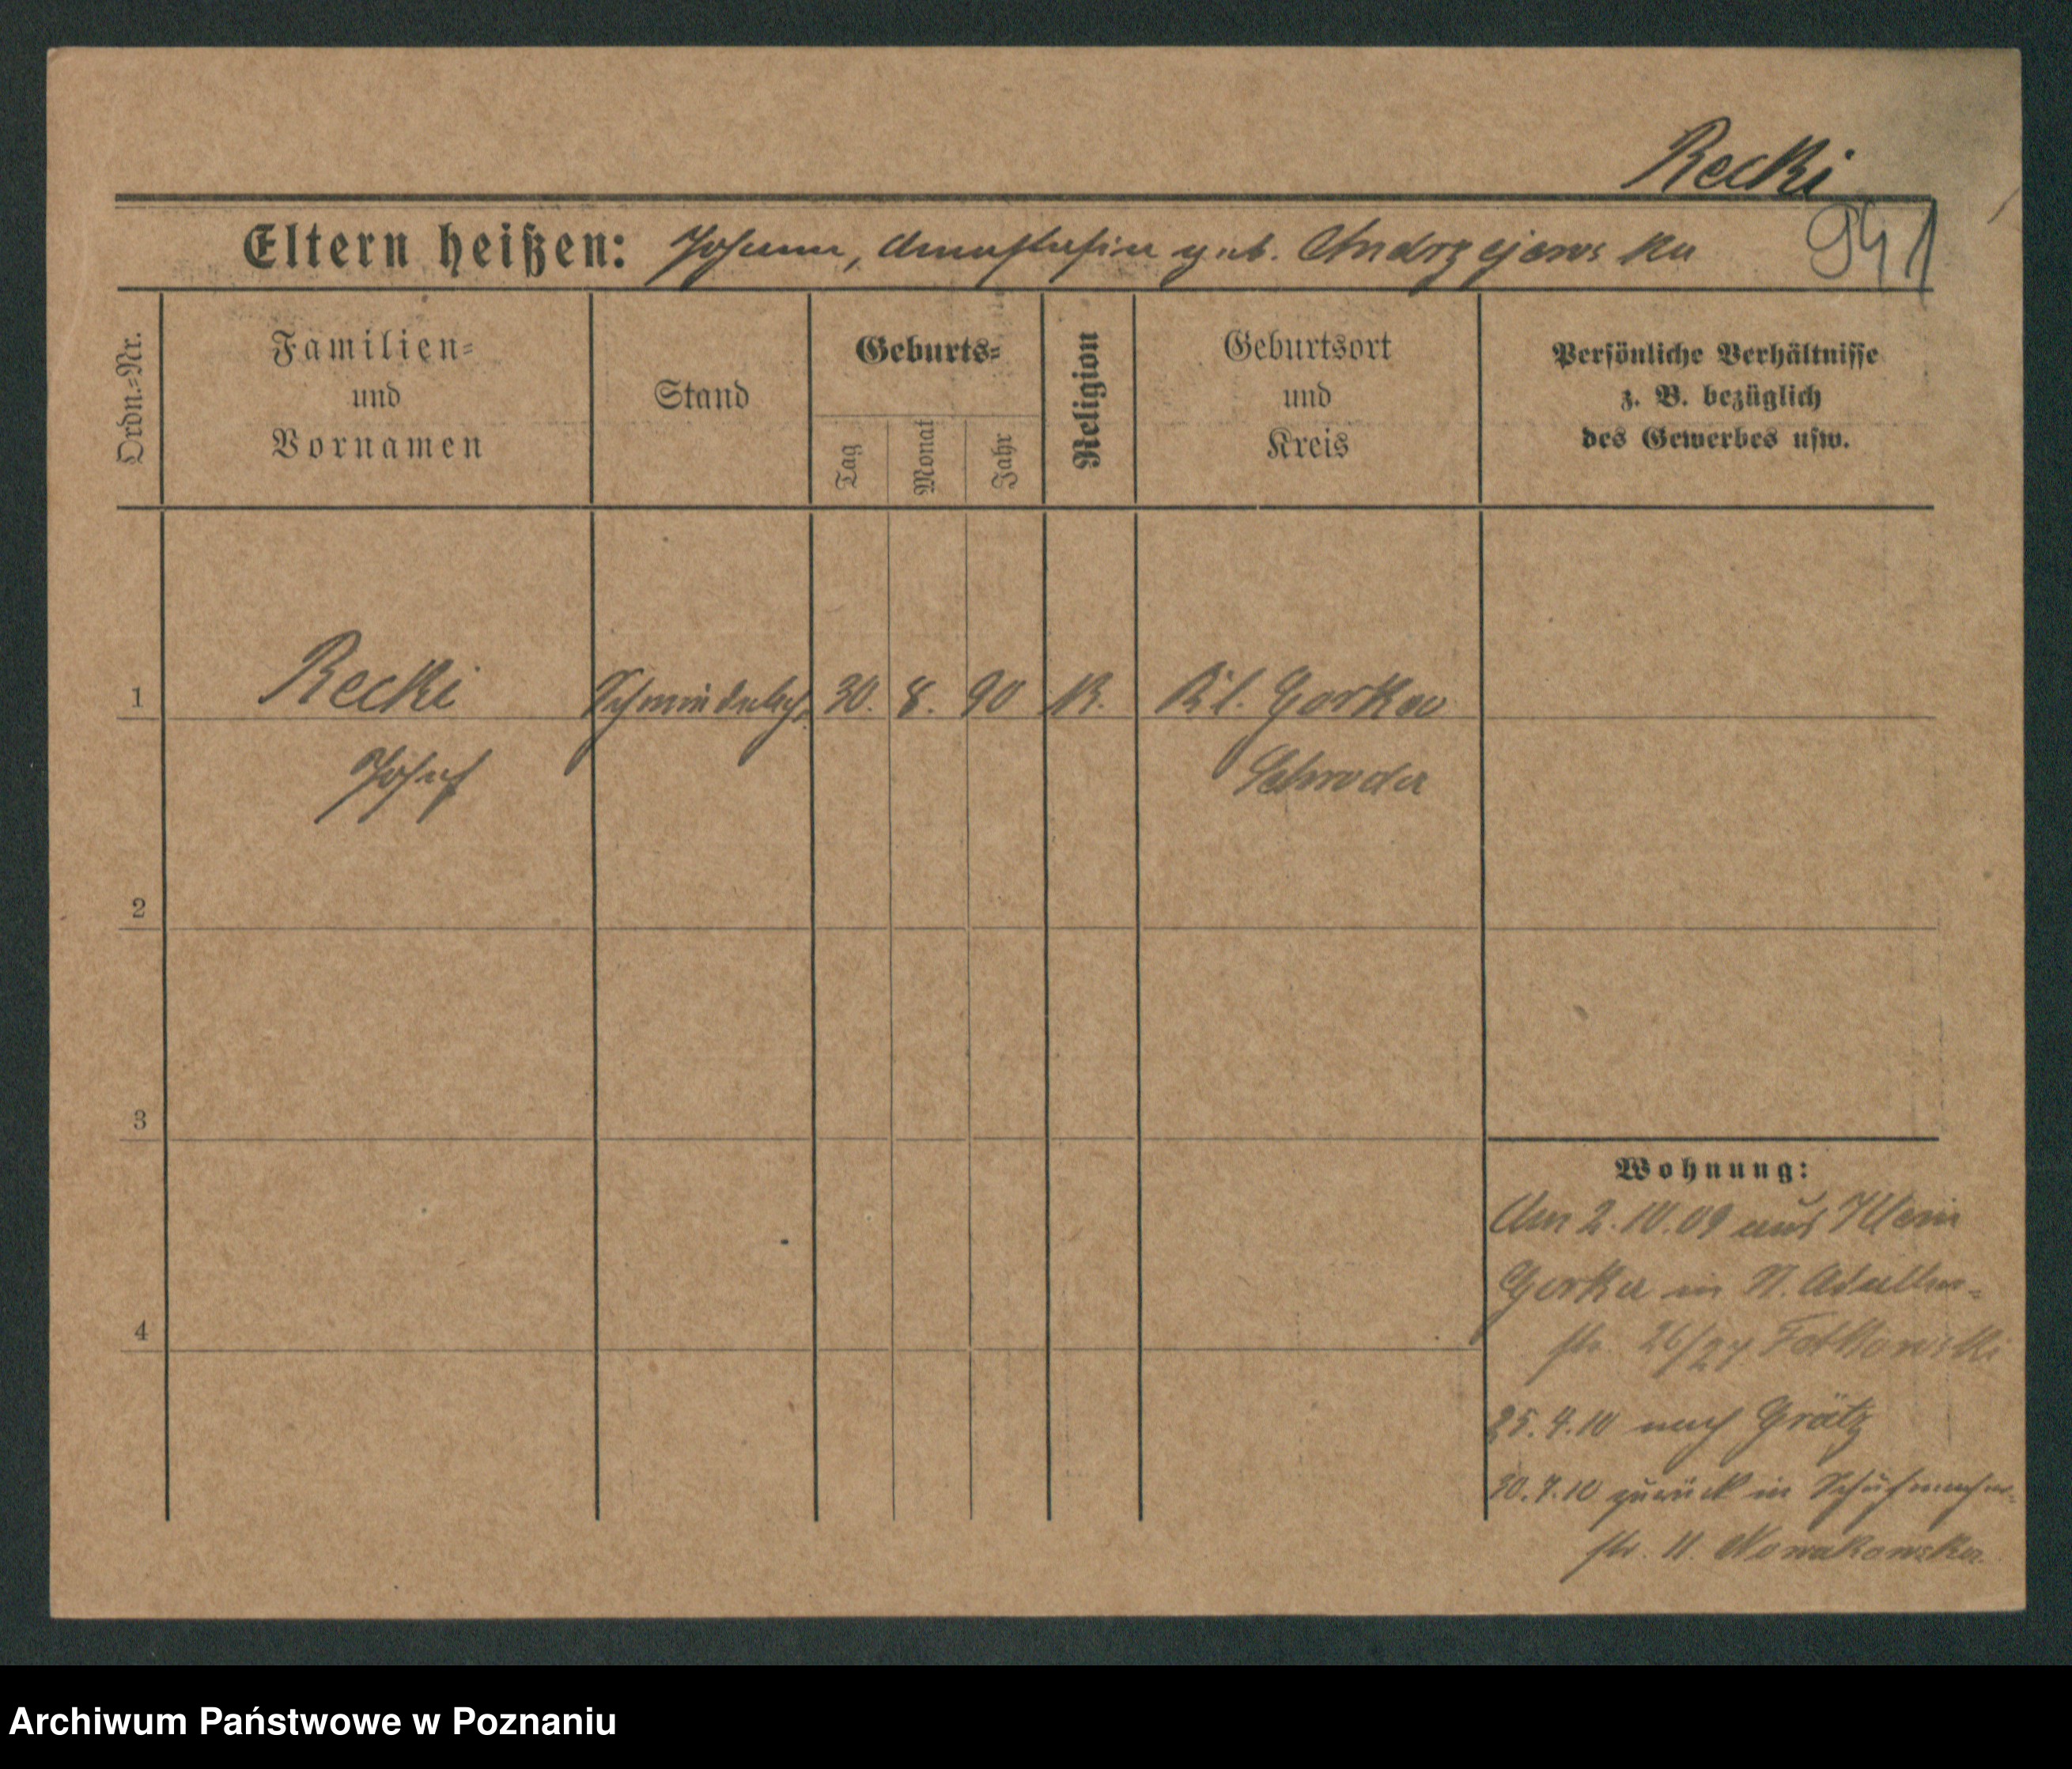 Recki
941
Eltern heißen: Johann, Anastasia geb. Andrzejewska
Ordn.=Nr.
Familien=
und
Vornamen
Stand
Geburts=
Tag
Monat
Jahr
Religion
Geburtsort
und
Kreis
Persönliche Verhältnisse
z. B. bezüglich
des Gewerbes usw.
1
Recki
30. 8. 90 K. Kl. Gorka
Josef
Schroda
2
3
4
Wohnung:
Am 2.10.09 aus Klein
Gorka in
str. 26/27
25.4.10 nach Grätz
30.7.10 zurück in Schuhmacher=
str. 11. Nowakowska
Archiwum Państwowe w Poznaniu